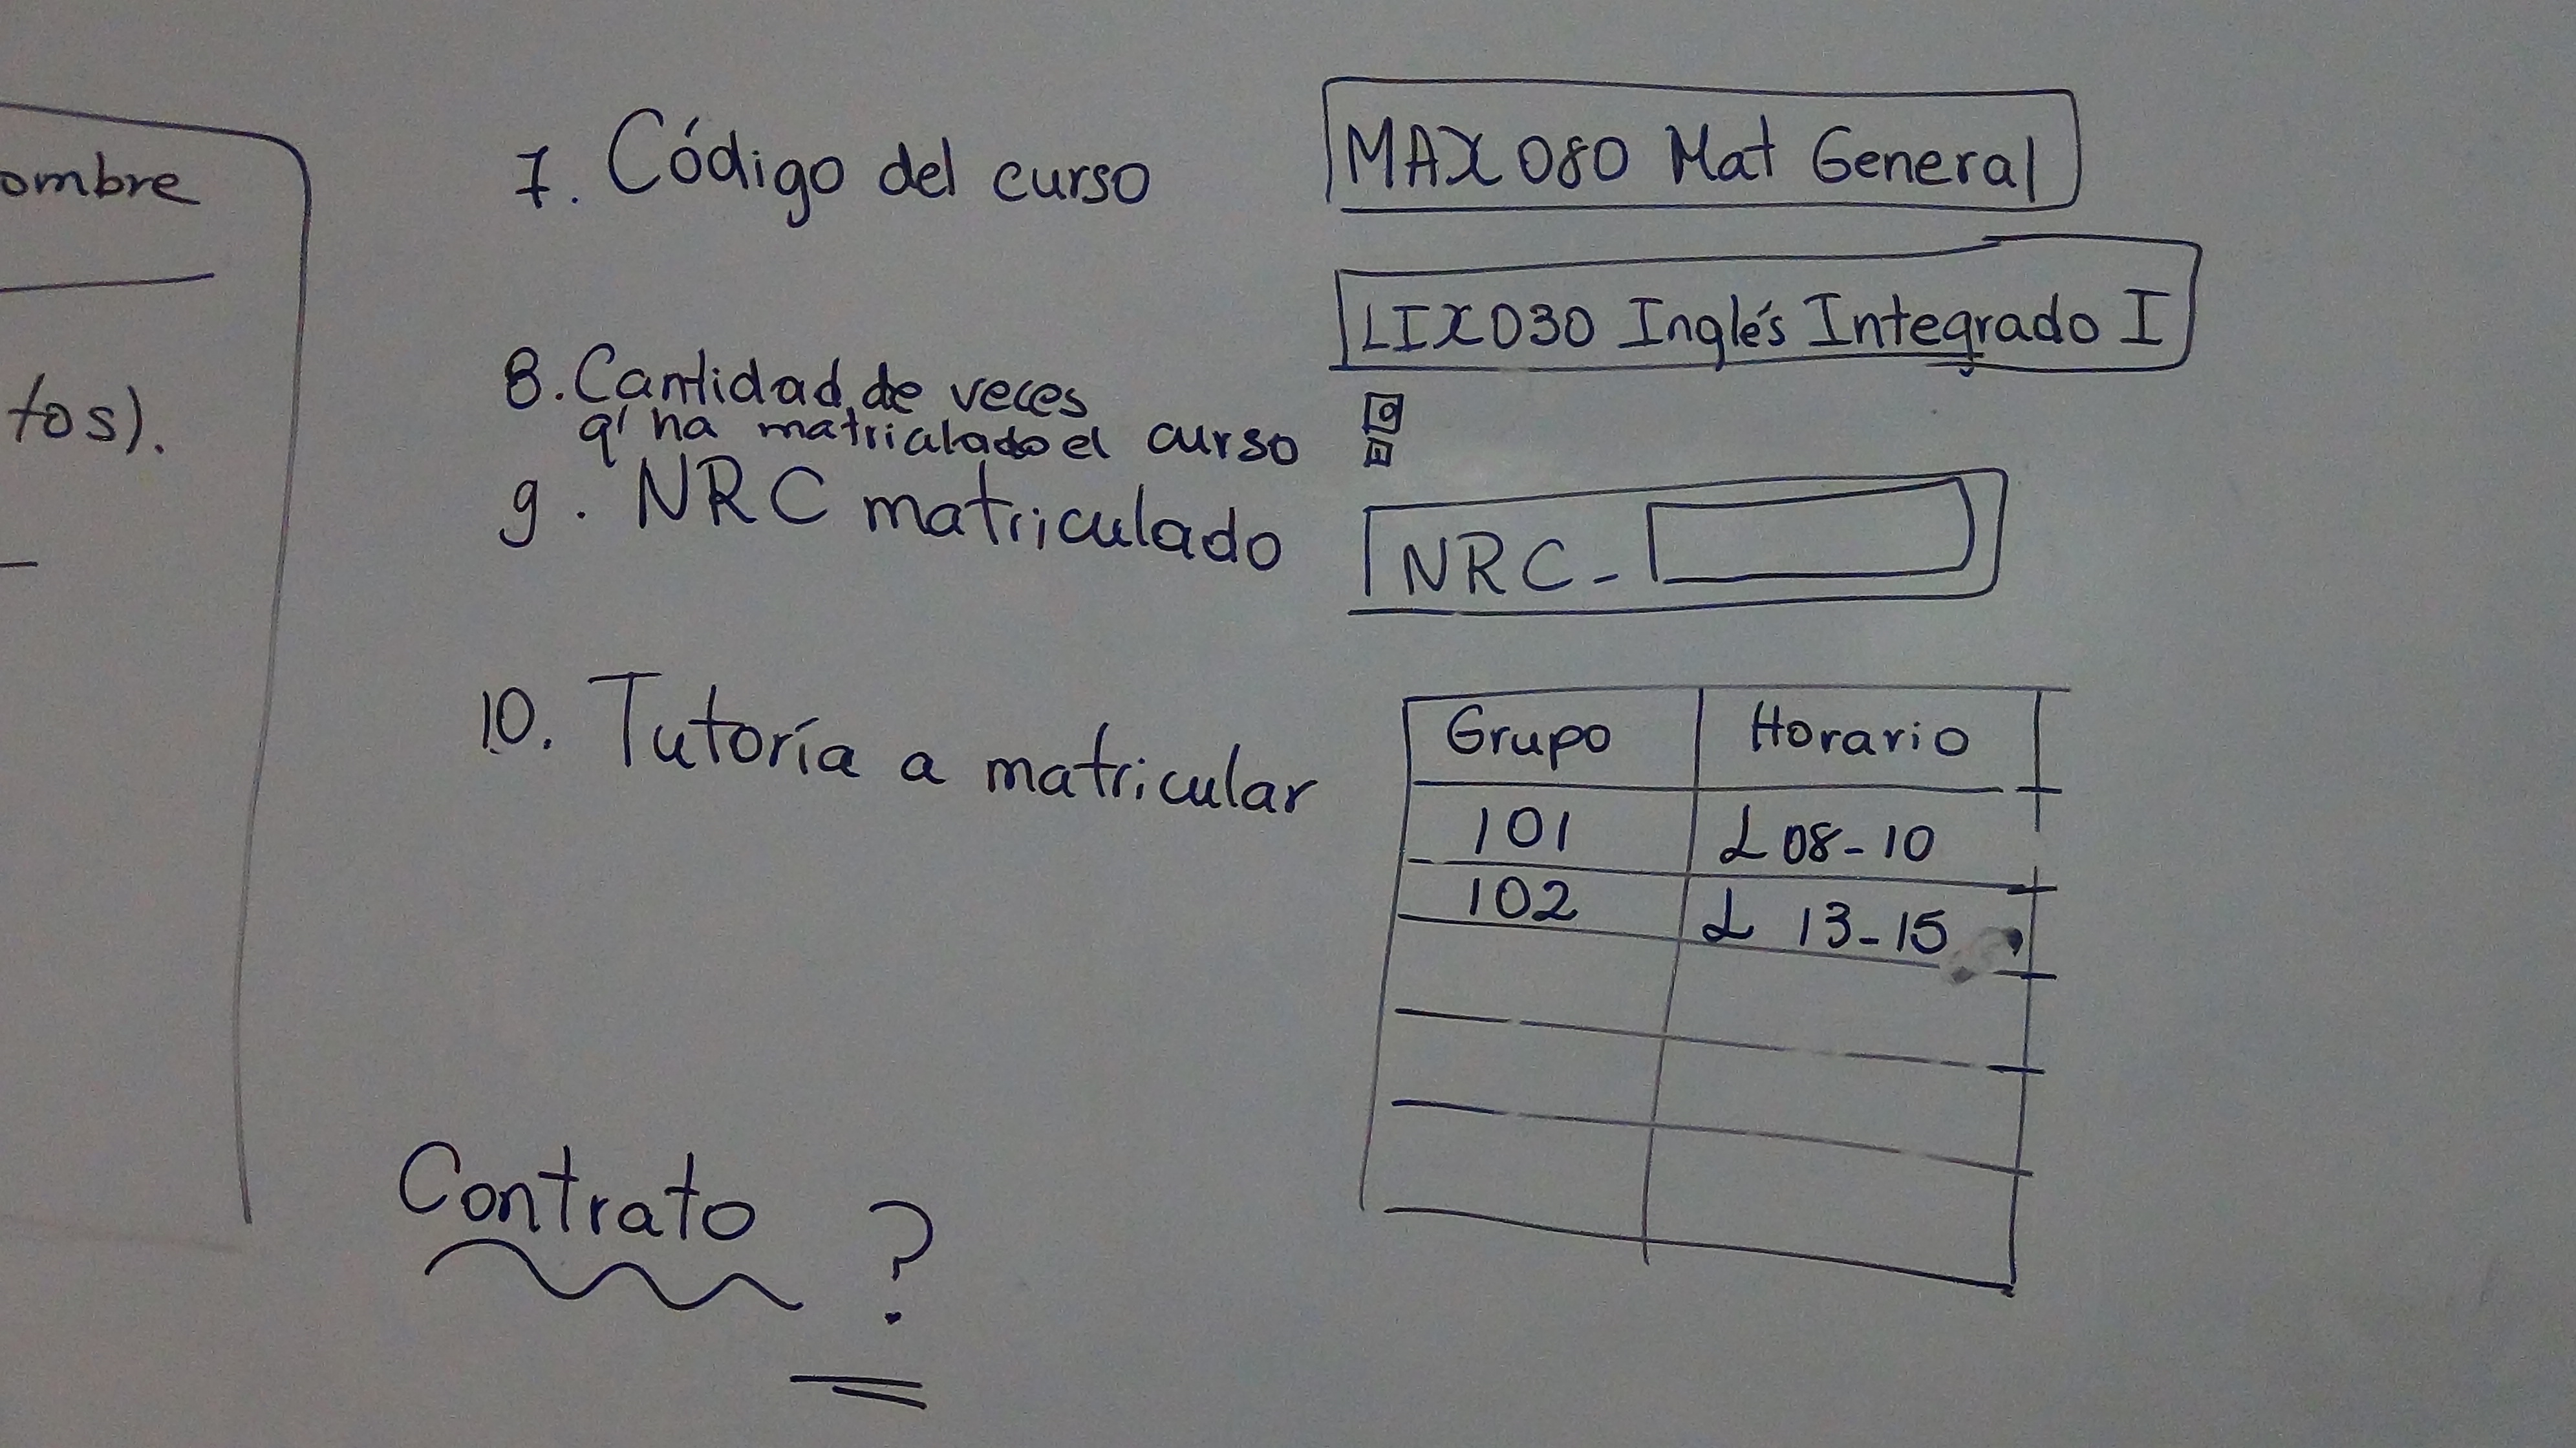 ombre
tos).
7. Código del curso
MAX080 Mat General
LIX030 Inglés Integrado I
8. Cantidad de veces
q' ha matriculado el curso
0
1
9. NRC matriculado
NRC-
10. Tutoría a matricular
Grupo Horario
101 L 08-10
102 L 13-15
Contrato ?